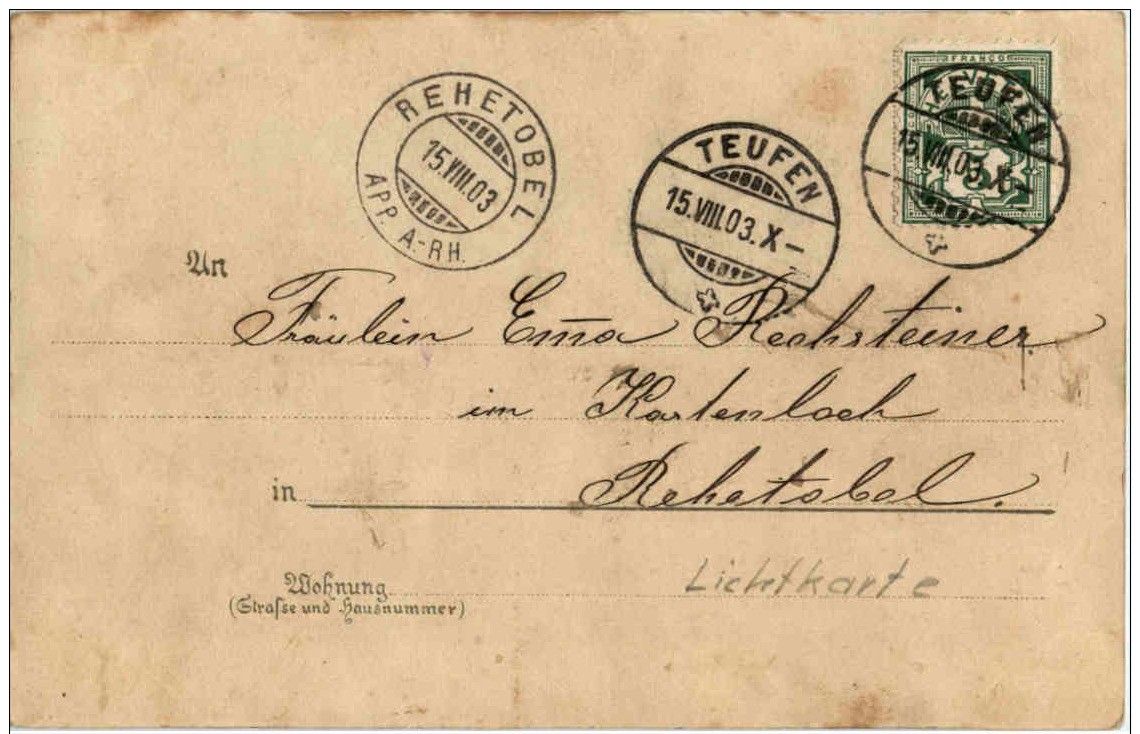 FRANCO
HELVETIA
5
TEUFEN
15.VIII.03.X-
TEUFEN
15.VIII.03.X-
REHETOBEL
15.VIII.03
APP. A.-RH.
An
Fräulein Em̄a Rechsteiner
im Kastenloch
in Rehetobel.
Wohnung
(Strasse und Hausnummer)
Lichtkarte